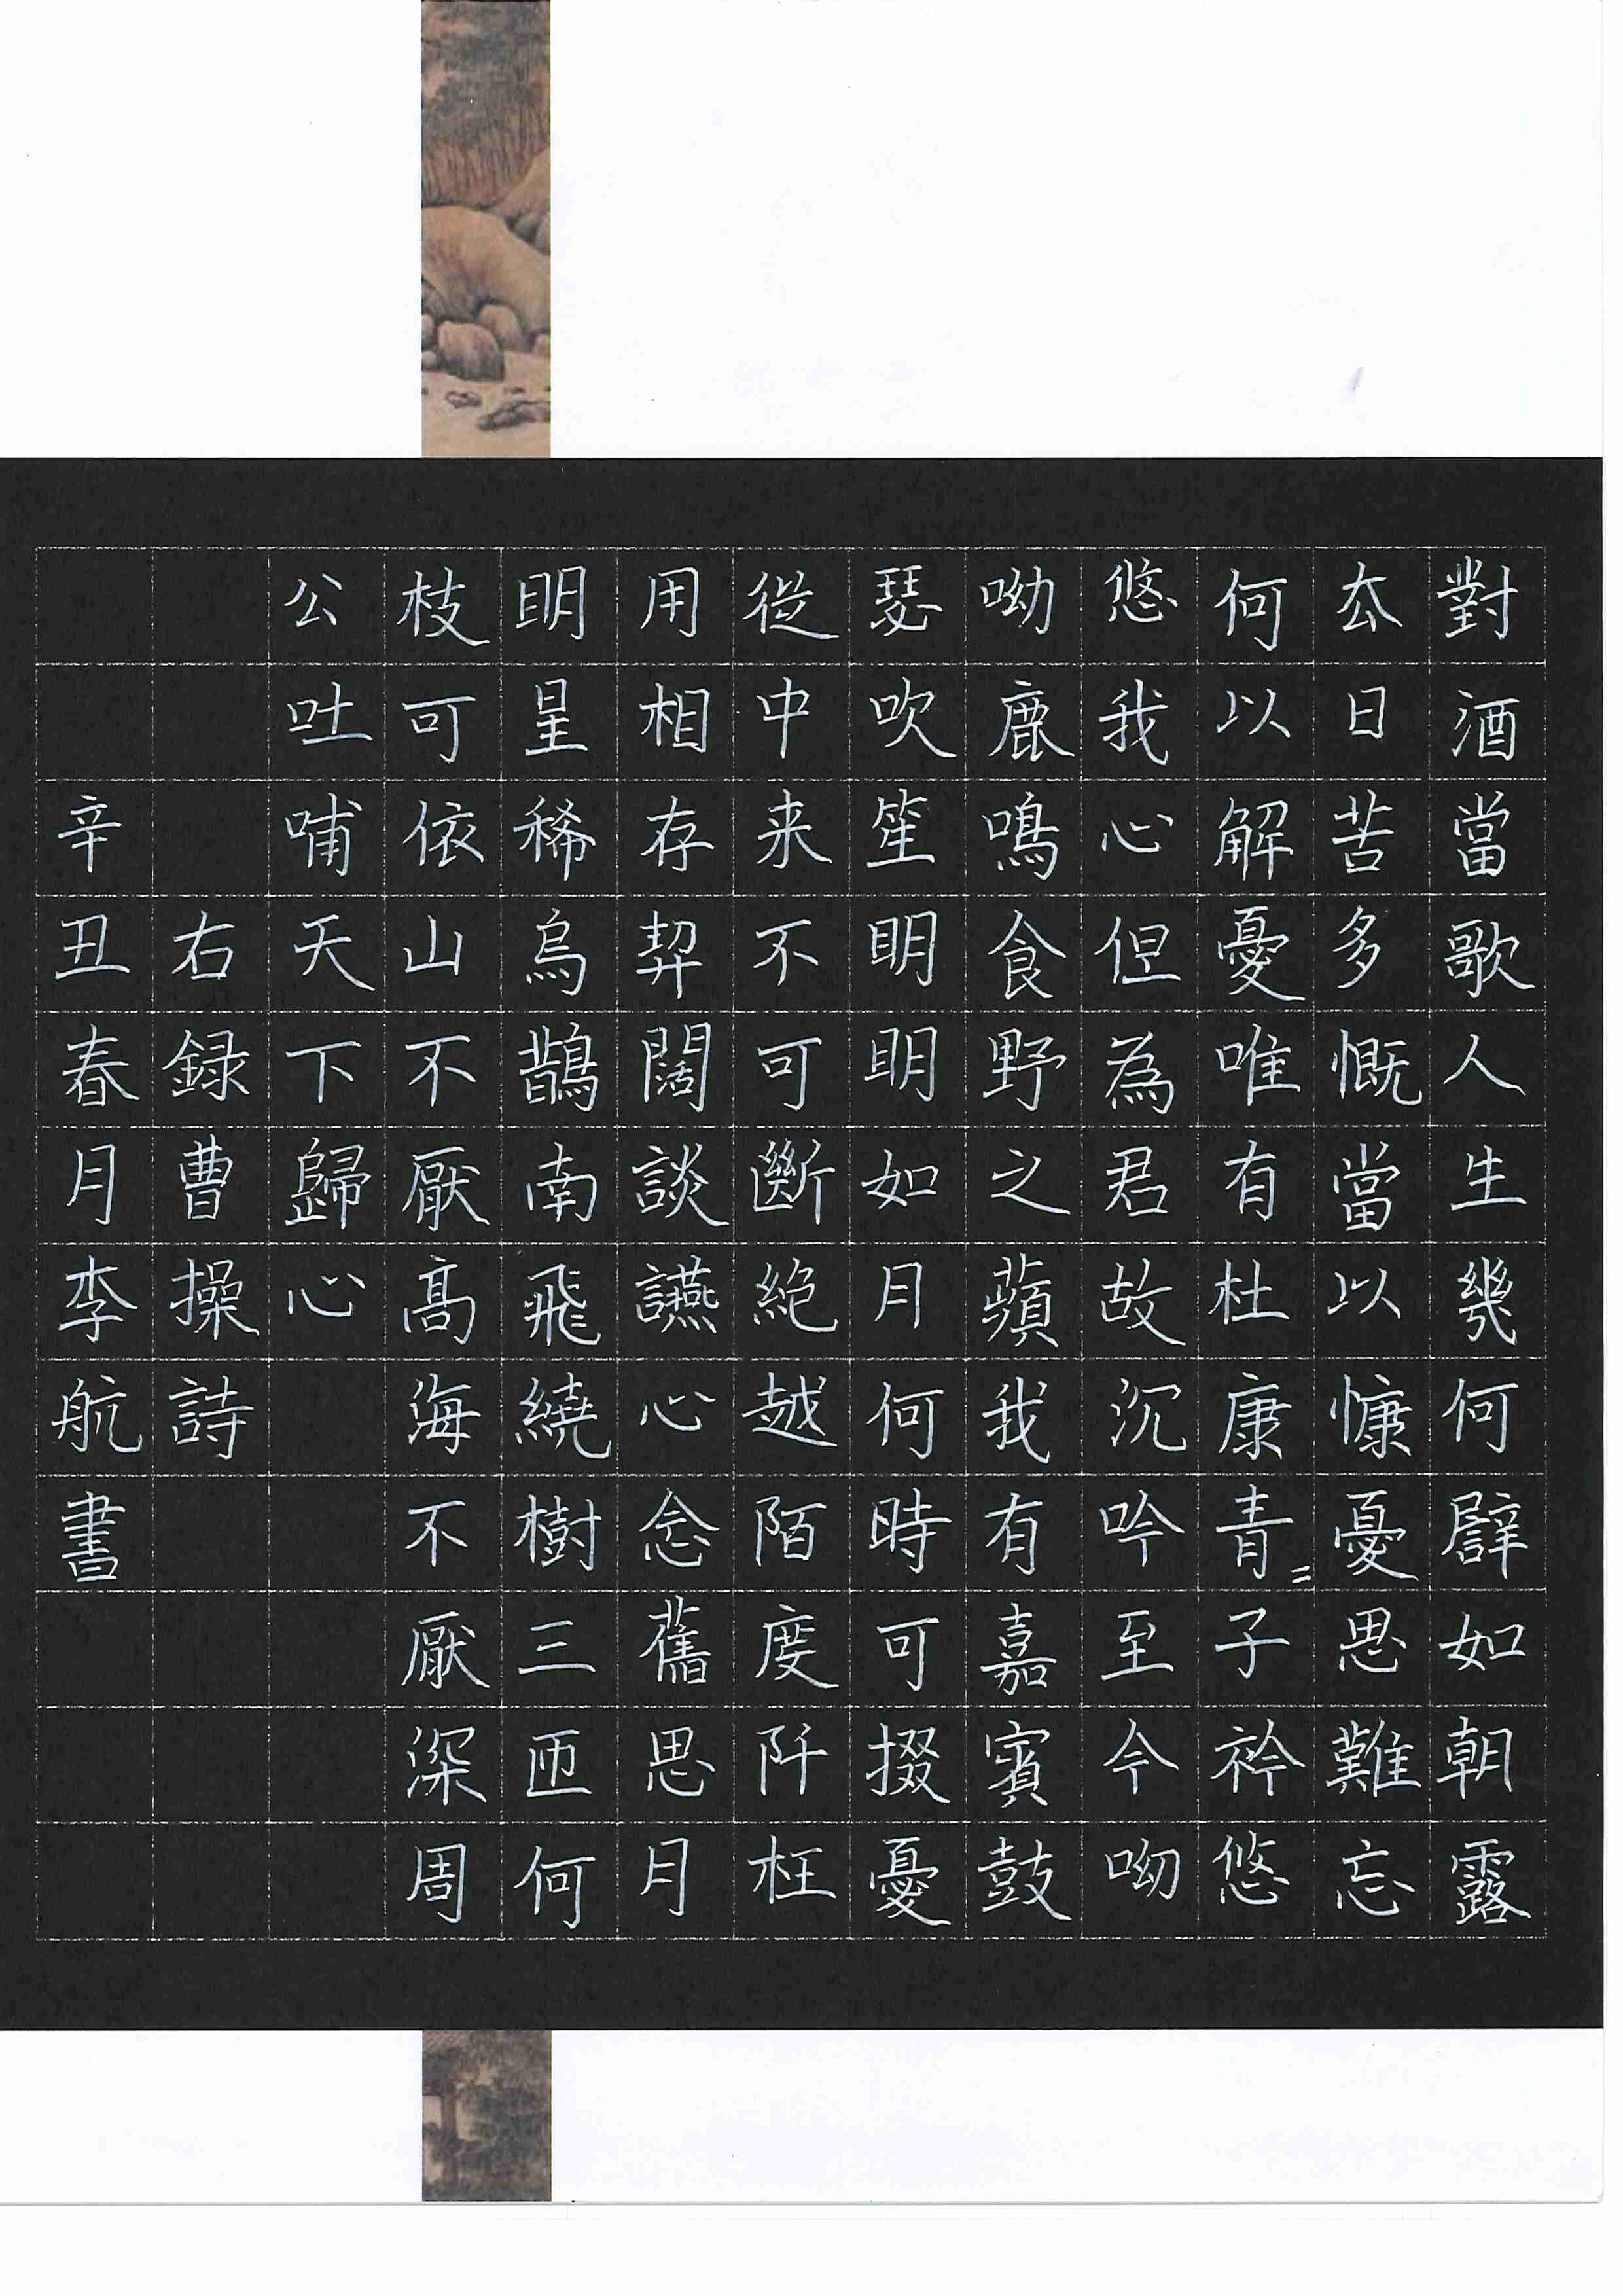 對酒當歌人生幾何譬如朝露
去日苦多慨當以慷憂思難忘
何以解憂唯有杜康青=子衿悠
悠我心但為君故沉吟至今呦
呦鹿鳴食野之蘋我有嘉賓鼓
瑟吹笙明明如月何時可掇憂
從中来不可斷絕越陌度阡枉
用相存契闊談讌心念舊恩月
明星稀烏鵲南飛繞樹三匝何
枝可依山不厭高海不厭深周
公吐哺天下歸心
右録曹操詩
辛丑春月李航書